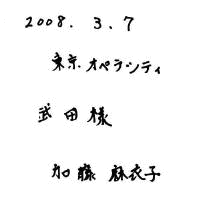 2008. 3. 7
東京オペラシティ
武田様
加藤 麻衣子